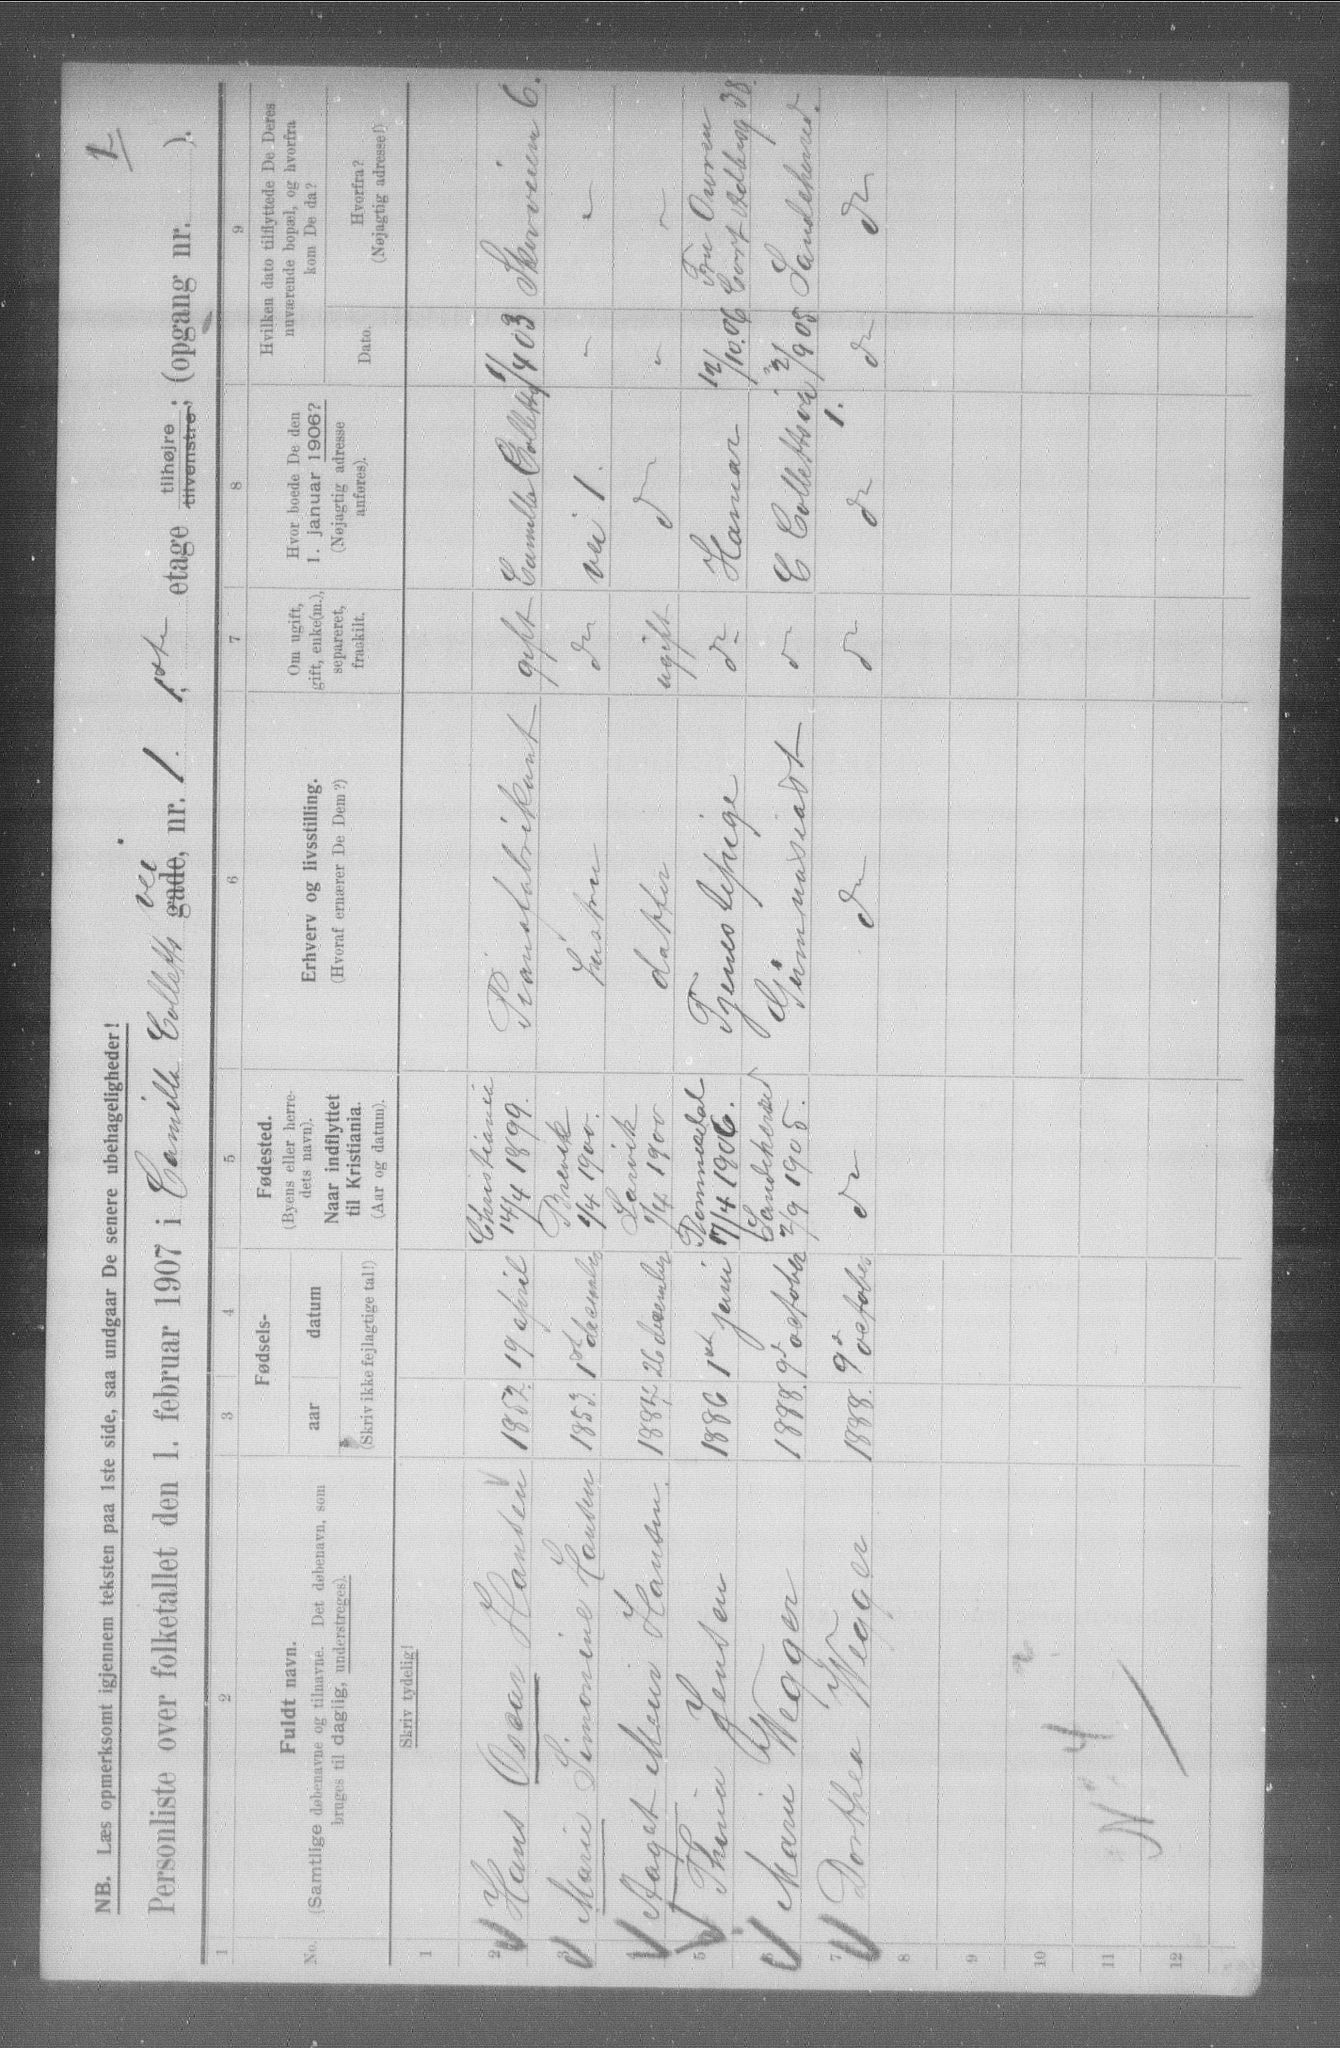 1
NB. Læs opmerksomt igjennem teksten paa 1ste side, saa undgaar De senere ubehageligheder!
Personliste over folketallet den 1. februar 1907 i Camilla Colletts vei gade, nr. 1. 1ste etage tilhøjre tilvenstre; (opgang nr. ).
1 2 3 4 5 6 7 8 9
No.
Fuldt navn.
(Samtlige døbenavne og tilnavne. Det døbenavn, som
bruges til daglig, understreges).
Fødsels-
aar datum
(Skriv ikke fejlagtige tal!)
Fødested.
(Byens eller herre-
dets navn).
Naar indflyttet
til Kristiania.
(Aar og datum).
Erhverv og livsstilling.
(Hvoraf ernærer De Dem?)
Om ugift,
gift, enke(m.),
separeret,
fraskilt.
Hvor boede De den
1. januar 1906?
(Nøjagtig adresse
anføres).
Hvilken dato tilflyttede De Deres
nuværende bopæl, og hvorfra
kom De da?
Dato.
Hvorfra?
(Nøjagtig adresse!)
Skriv tydelig!
1
2 Hans Oscar Hansen 1852. 19 april Christiania 14/4 1899. Pianofabrikant gift Camilla Colletts 1/4 03 Skovveien 6.
3 Marie Simonine Hansen 1853. 1st december Brevik 1/4 1900. hustru do vei 1. " "
4 Aagot Hansen. 1884 26 december Larvik 1/4 1900 datter ugift do " "
5 Thina Jensen 1886 1st juni 17/4 1906. Tjenestepige do Hamar 12/10.06 Fru 38.
6 Marie Wegger 1888. 9de october Sandeherred 2/9 1905. Gymnasiast do C Colletts vei 1. 2/9 05 Sandeherred.
7 Dorthea Wegger 1888. 9de october do do do do do do
8
9
10
11
12
N 4